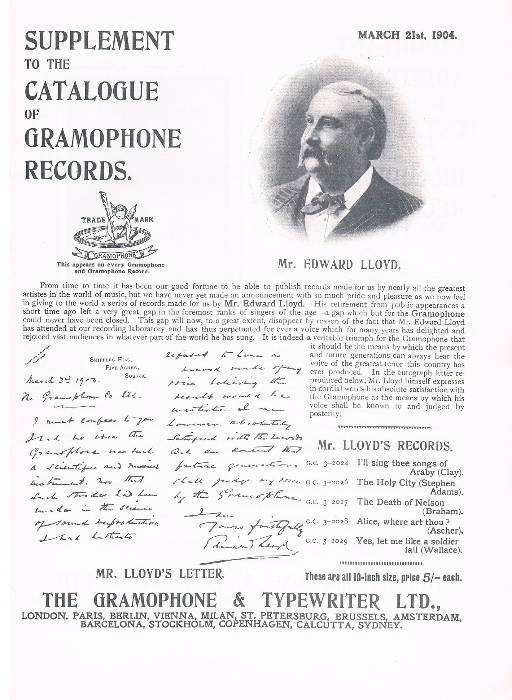 SUPPLEMENT
TO THE
CATALOGUE
OF
GRAMOPHONE
RECORDS.
MARCH 21st, 1904.
TRADE MARK
GRAMOPHONE
This appears on every Gramophone
and Gramophone Record.
Mr. EDWARD LLOYD.
From time to time it has been our good fortune to be able to publish records made for us by nearly all the greatest
artistes in the world of music, but we have never yet made an announcement with so much pride and pleasure as we now feel
in giving to the world a series of records made for us by Mr. Edward Lloyd. His retirement from public appearances a
short time ago left a very great gap in the foremost ranks of singers of the age—a gap which but for the Gramophone
could never have been closed. This gap will now, to a great extent, disappear by reason of the fact that Mr. Edward Lloyd
has attended at our recording laboratory and has thus perpetuated for ever a voice which for many years has delighted and
rejoiced vast audiences in whatever part of the world he has sung. It is indeed a veritable triumph for the Gramophone that
it should be the means by which the present
and future generations can always hear the
voice of the greatest tenor this country has
ever produced. In the autograph letter re-
produced below, Mr. Lloyd himself expresses
in cordial words his absolute satisfaction with
the Gramophone as the means by which his
voice shall be known to and judged by
posterity.
FIVE ASHES,
SUSSEX.
March 2nd 1904.
The Gramophone Co Ltd.
I must confess to you
I had no idea the
Gramophone was such
a scientific and musical
instrument, nor that
such strides had been
made in the science
of sound reproduction
I had hitherto
refused to have a
record made of my
voice believing the
result would be
I am
however absolutely
satisfied with the records
and am content that
future generations
shall judge my voice
by the Gramophone.
I am
Yours faithfully
Edward Lloyd
MR. LLOYD'S LETTER.
Mr. LLOYD'S RECORDS.
G.C. 3-2024 I'll sing thee songs of
Araby (Clay).
G.C. 3-2026 The Holy City (Stephen
Adams).
G.C. 3 2027 The Death of Nelson
(Braham).
G.C. 3-2028 Alice, where art thou?
(Ascher).
G.C. 3 2029 Yes, let me like a soldier
fall (Wallace).
These are all 10-inch size, price 5/- each.
THE GRAMOPHONE & TYPEWRITER LTD.,
LONDON, PARIS, BERLIN, VIENNA, MILAN, ST. PETERSBURG, BRUSSELS, AMSTERDAM,
BARCELONA, STOCKHOLM, COPENHAGEN, CALCUTTA, SYDNEY.